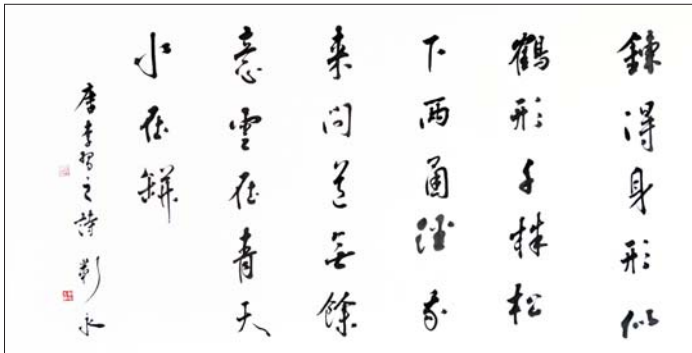 鍊得身形似
鶴形千株松
下兩函經我
来問道無餘
意雲在青天
水在缾
唐李習之詩 永